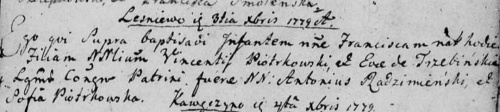 Franciszka Smoleńska
Leśniewo ię 3tia Xbris 1779 A.
Ego qvi Supra baptisavi Infantem nñe Franciscam nat hodie
Filiam NNlium Vincentii Piotrkowski, et Evæ de Trzebińska
Lgmõ Conjv Patrini fuere NN: Antonius Radzimiński, et
Sofia Piotrkowska.
Kawęczyno ię 4ta Xbris 1779.